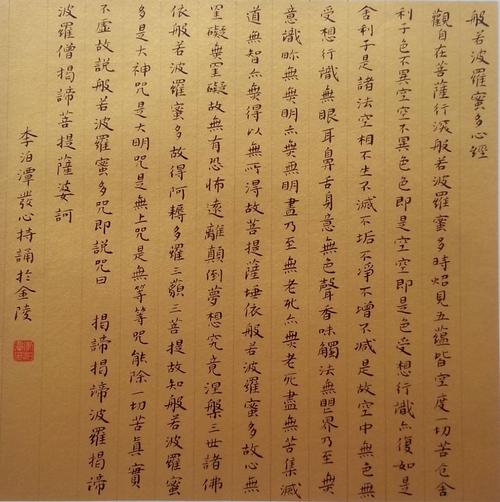 般若波羅蜜多心經
觀自在菩薩行深般若波羅蜜多時炤見五蘊皆空度一切苦厄舍
利子色不異空空不異色色即是空空即是色受想行識亦復如是
舍利子是諸法空相不生不滅不垢不淨不增不減是故空中無色無
受想行識無眼耳鼻舌身意無色聲香味觸法無眼界乃至無
意識界無無明亦無無明盡乃至無老死亦無老死盡無苦集滅
道無智亦無得以無所得故菩提薩埵依般若波羅蜜多故心無
罣礙無罣礙故無有恐怖遠離顛倒夢想究竟涅槃三世諸佛
依般若波羅蜜多故得阿耨多羅三藐三菩提故知般若波羅蜜
多是大神咒是大明咒是無上咒是無等等咒能除一切苦真實
不虛故說般若波羅蜜多咒即說咒曰 揭諦揭諦波羅揭諦
波羅僧揭諦菩提薩婆訶
李泊潭發心持誦於金陵